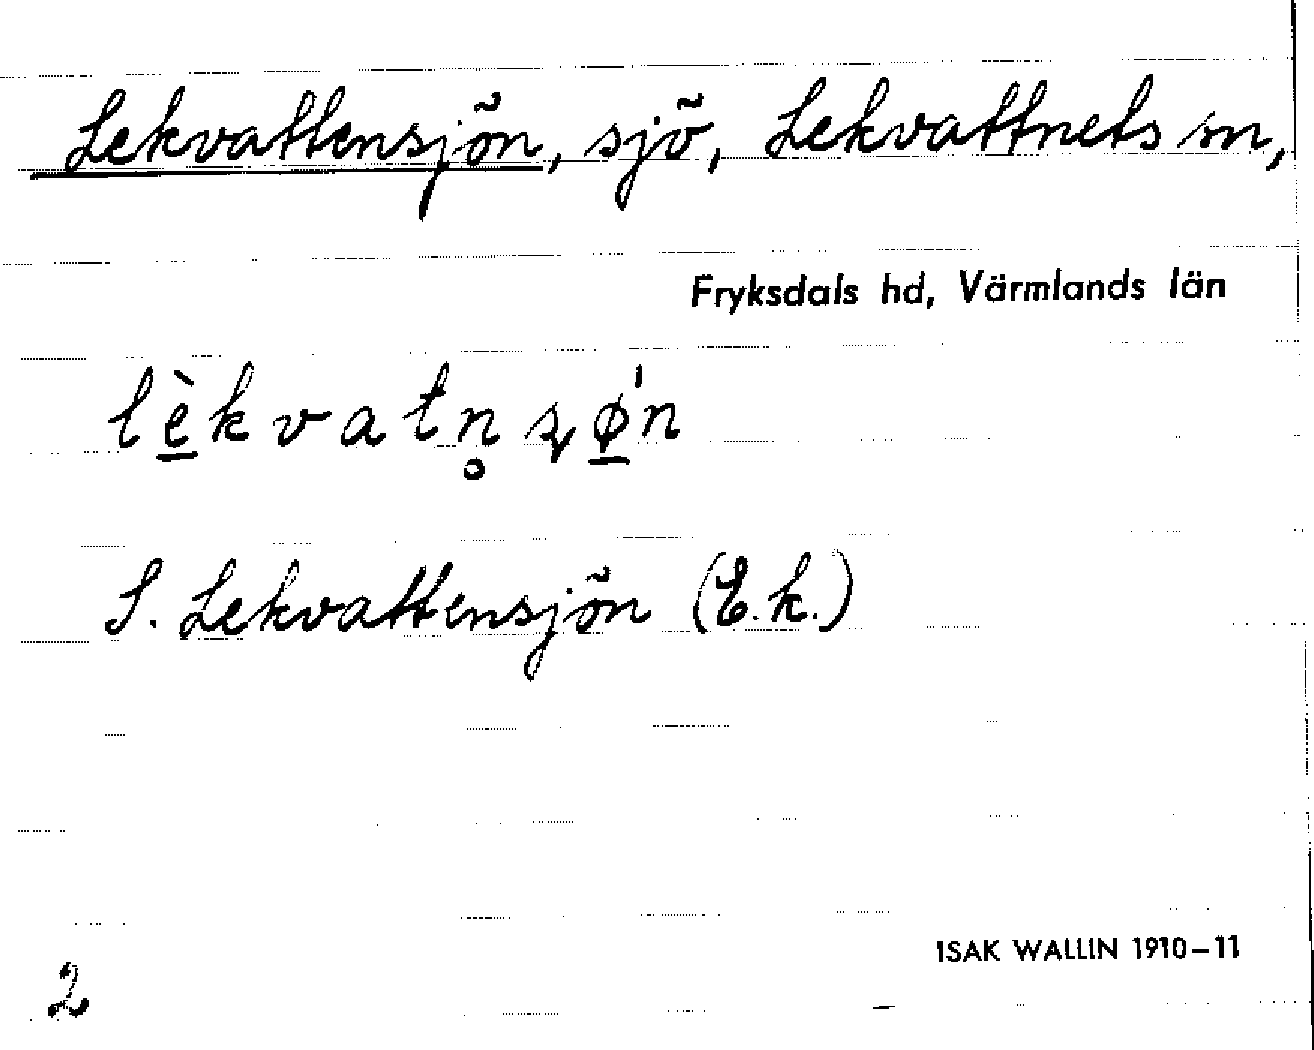 Lekvattensjön, sjö, Lekvattnets sn,
Fryksdals hd, Värmlands län
lèkvatn̥ ʂø̠'n
S. Lekvattensjön (E.k.)
ISAK WALLIN 1910–11
2